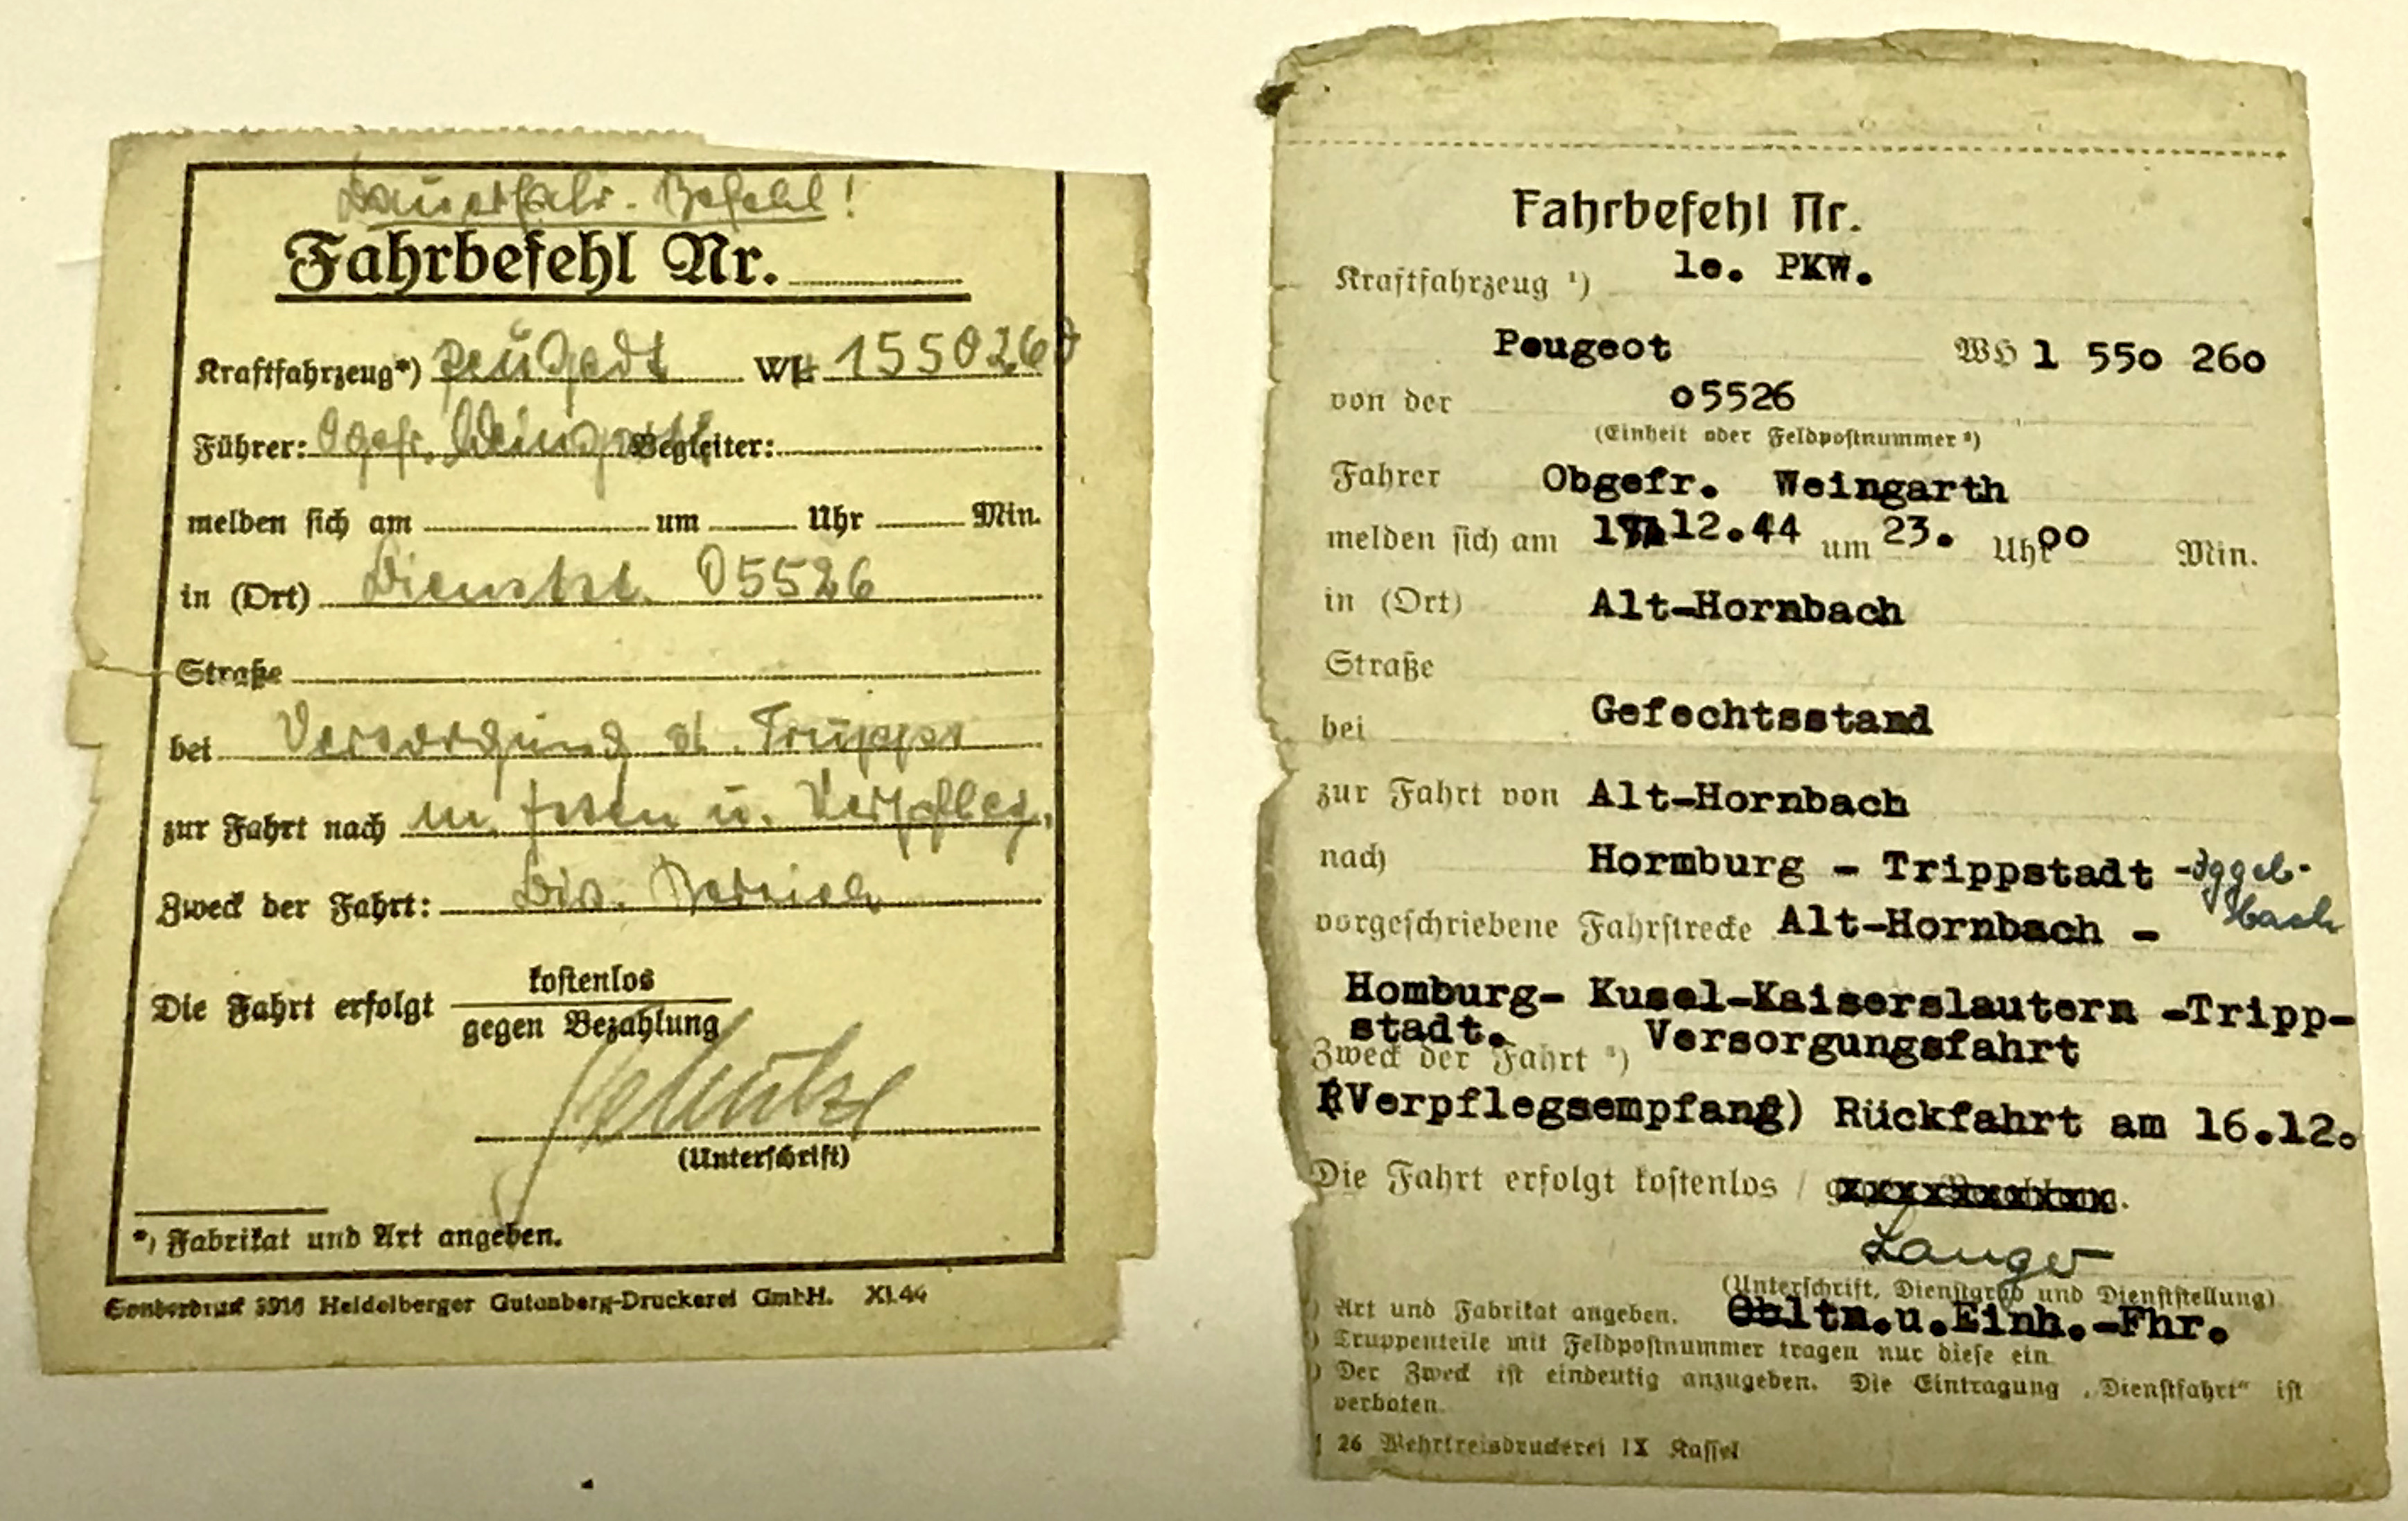 Dauerfahr-Befehl!
Fahrbefehl Nr.
Kraftfahrzeug*) Peugeot WH 1550260
Führer: Ogefr. Weingarth Begleiter:
melden sich am um Uhr Min.
in (Ort) Dienstst. 05526
Straße
bei Versorgung d. Truppe
zur Fahrt nach m. Essen u. Verpfleg.
Zweck der Fahrt: Div. Bereich
Die Fahrt erfolgt kostenlos
gegen Bezahlung
Schulze
(Unterschrift)
*) Fabrikat und Art angeben.
Sonderdruck Heidelberger Gutenberg-Druckerei GmbH. XI.44
Fahrbefehl Nr.
Kraftfahrzeug ¹) le. PKW.
Peugeot WH 1 550 260
von der 05526
(Einheit oder Feldpostnummer ²)
Fahrer Obgefr. Weingarth
melden sich am 12.44 um 23. Uhr 00 Min.
in (Ort) Alt-Hornbach
Straße
bei Gefechtsstand
zur Fahrt von Alt-Hornbach
nach Hormburg - Trippstadt - Iggel-
bach
vorgeschriebene Fahrstrecke Alt-Hornbach -
Homburg- Kusel-Kaiserslautern -Tripp-
stadt.
Zweck der Fahrt ³) Versorgungsfahrt
(Verpflegsempfang) Rückfahrt am 16.12.
Die Fahrt erfolgt kostenlos /
Langer
(Unterschrift, Dienstgrad und Dienststellung)
) Art und Fabrikat angeben. Obltn.u.Einh.-Fhr.
) Truppenteile mit Feldpostnummer tragen nur diese ein
) Der Zweck ist eindeutig anzugeben. Die Eintragung „Dienstfahrt" ist
verboten.
26 Wehrkreisdruckerei IX Kassel